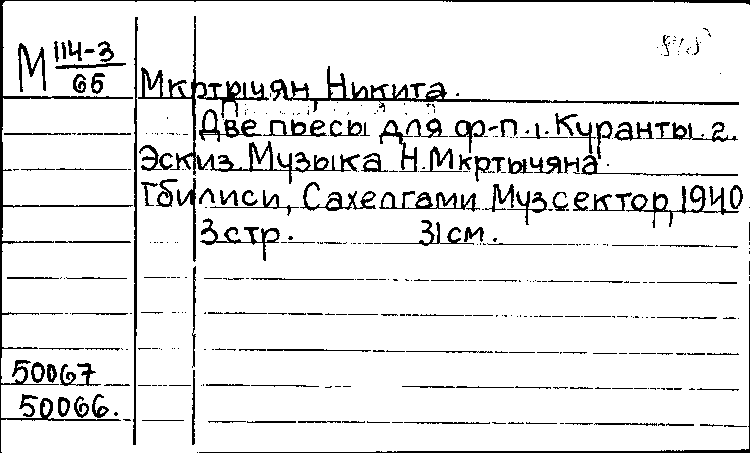 М 114-3
65
Мкртычян, Никита.
Две пьесы для ф-п. 1. Куранты. 2.
Эскиз. Музыка Н. Мкртычяна.
Тбилиси, Сахелгами Музсектор, 1940
3 стр. 31 см.
50067
50066.